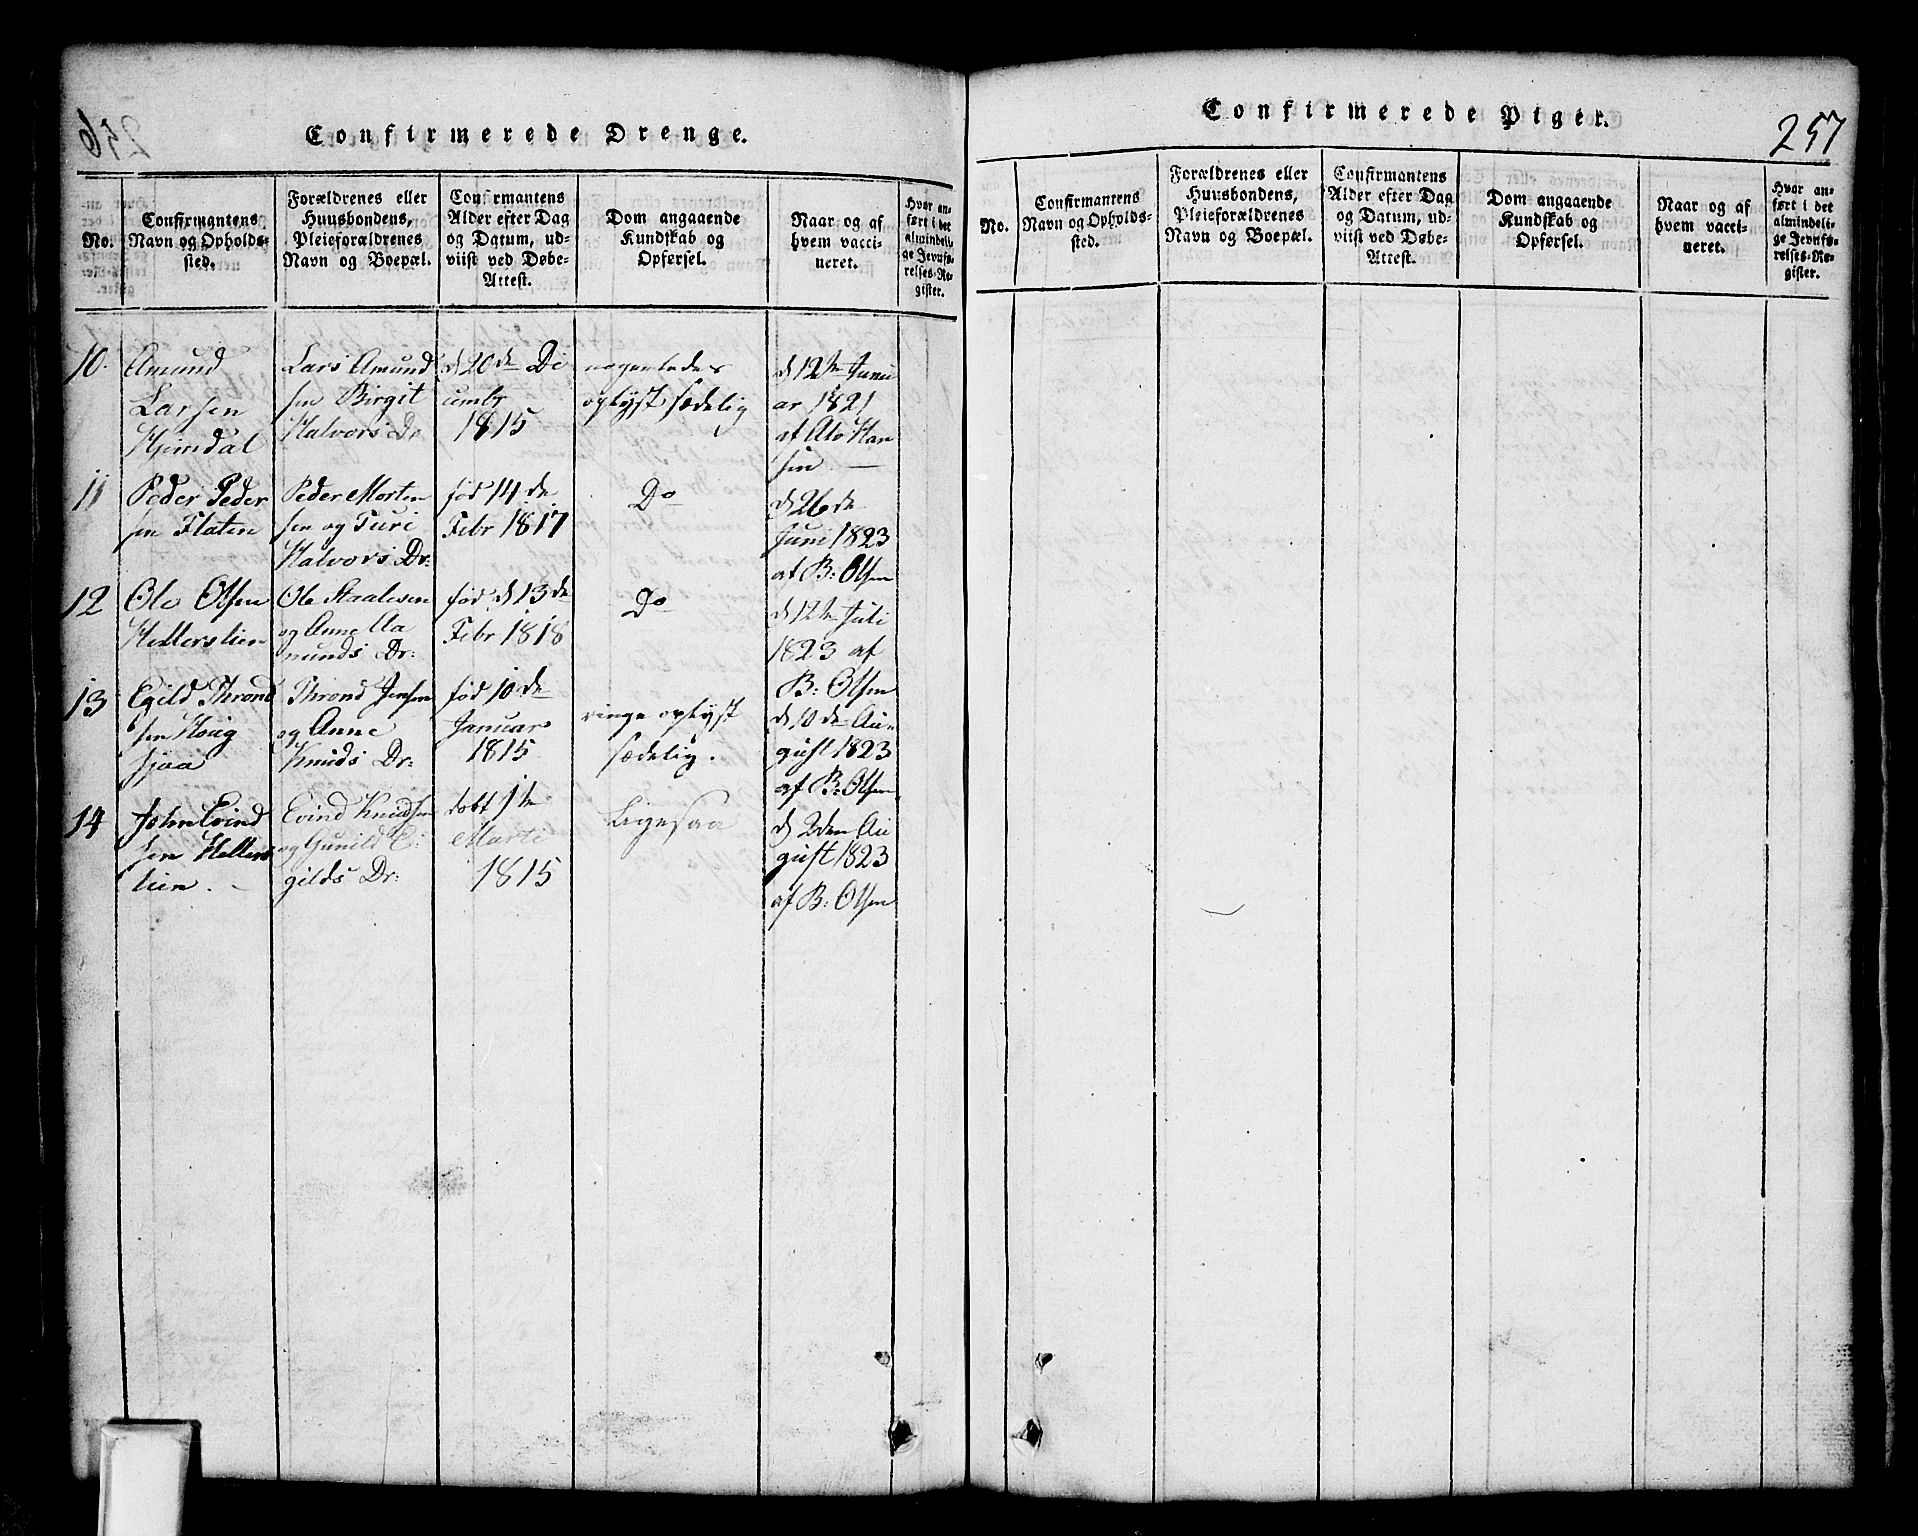 Confirmerede Drenge.
No.
Confirmantens
Navn og Opholds-
sted.
Forældrenes eller
Huusbondens,
Pleieforældrenes
Navn og Boepæl.
Confirmantens
Alder efter Dag
og Datum, ud-
viist ved Døbe-
Attest.
Dom angaaende
Kundskab og
Opførsel.
Naar og af
hvem vacci-
neret.
Hvor an-
ført i det
almindeli-
ge Jevnfø-
relses-Re-
gister.
10.
Amund
Larsen
Hjemdal
Lars Amund
sen Birgit
Halvors Dr
d 20de De
cembr
1815
nogenledes
oplyst sædelig
d 12te Janu
ar 1821
af Ole Han
sen
11
Peder Peder
sen Flaten
Peder Morten
sen og Turi
Halvors Dr:
fød 14de
Febr 1817
Do
d 26de
Juni 1823
af B: Olsen
12
Ole Olsen
Hellerslien
Ole Staalesen
og Anne Aa
munds Dr:
fød d 13de
Febr 1818
Do
d 12te Juli
1823 af
B: Olsen
13
Egild Thrond
sen Houg
sjaa
Thrond Jensen
og Anne
Knuds Dr:
fød 10de
Januar
1815
ringe oplyst
sædelig.
d 10de Au-
gust 1823
af B: Olsen
14
John Evind
sen Hellers
lien.
Evind Knudsen
og Gunild E:
gilds Dr:
døbt 1te
Marti
1815
Ligesaa
d 2den Au
gust 1823
af B: Olsen
Confirmerede Piger.
257
No.
Confirmantens
Navn og Opholds-
sted.
Forældrenes eller
Huusbondens,
Pleieforældrenes
Navn og Boepæl.
Confirmantens
Alder efter Dag
og Datum, ud-
viist ved Døbe-
Attest.
Dom angaaende
Kundskab og
Opførsel.
Naar og af
hvem vacci-
neret.
Hvor an-
ført i det
almindeli-
ge Jevnfø-
relses-Re-
gister.